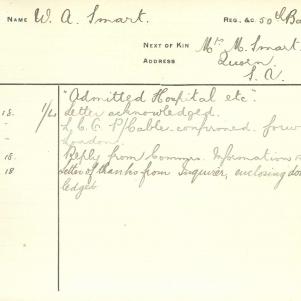 NAME W. A. Smart. REG. &C. 50th Ba
NEXT OF KIN Mrs M. Smart.
ADDRESS Quorn
S. A.
"Admitted Hospital etc"
18. Letter acknowledged.
P/Cables confirmed. forw
London.
18. Reply from Commrs. Information
18 Letter of thanks from Inquirer, enclosing don
ledged